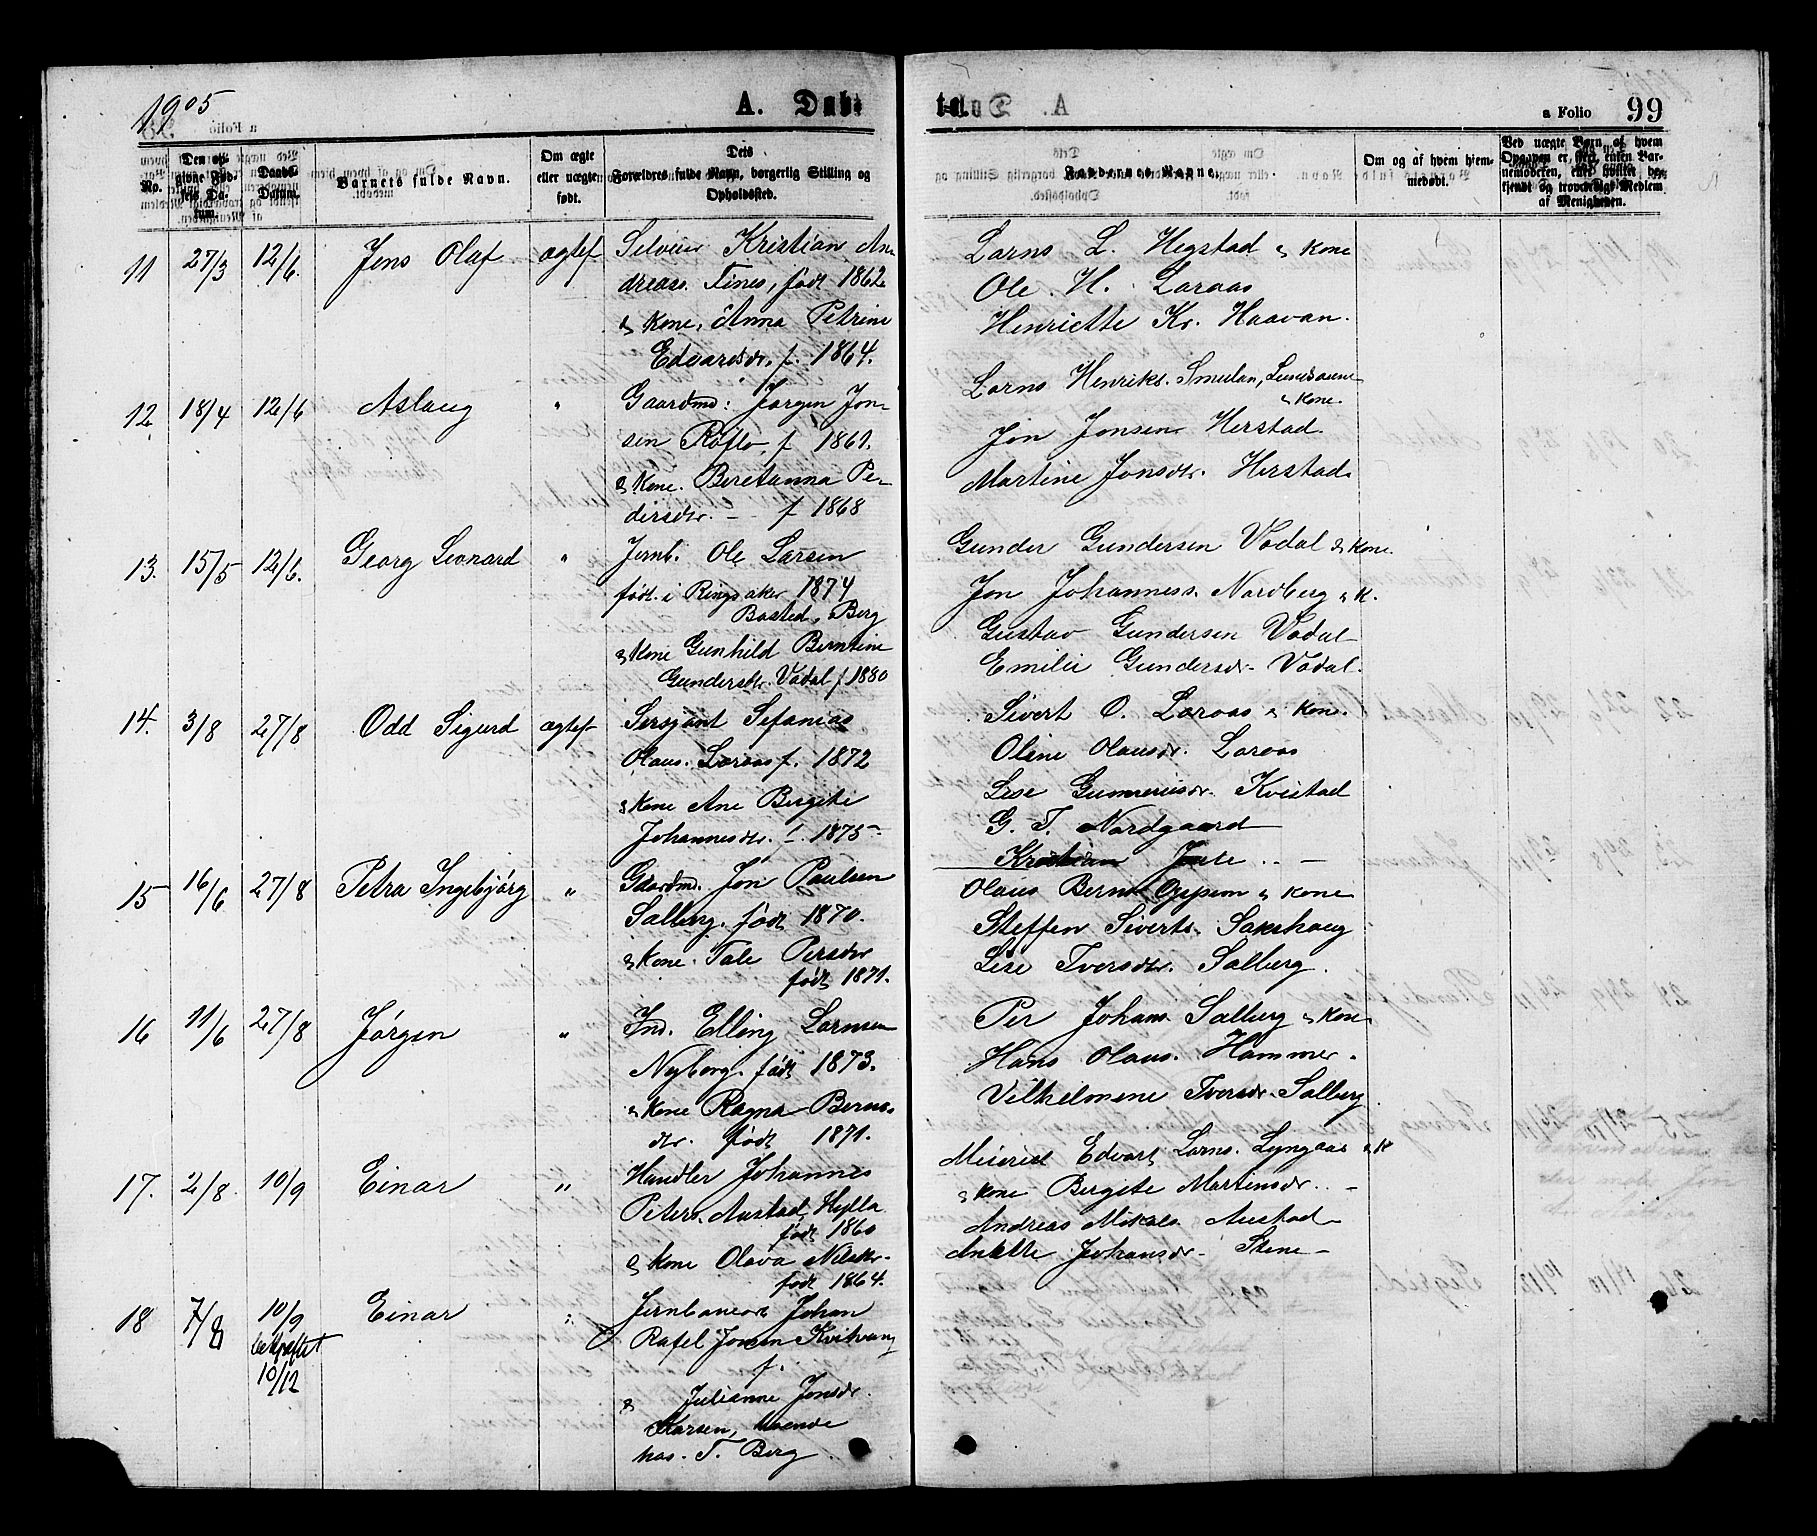 1905
A. Dåb-
te.
a Folio 99
No.
Den opgivne Fødsels Datum.
Daabs Datum.
Barnets fulde Navn.
Om ægte eller uægte født.
Dets Forældres fulde Navn, borgerlig Stilling og Opholdssted.
Faddernes Navne.
Om og af hvem hjemmedøbt.
Ved uægte Børn, af hvem Opgaven er, skeet, enten Barnemoderen, eller hvilket bekjendt og troværdigt Medlem af Menigheden.
11 27/3 12/6. Jens Olaf ægtef
Kristian An-
dreass. Tines, født 1862
& Kone, Anna Petrine
Edvardsdr. f. 1864.
Larns L. Hegstad & Kone
Ole. H. Laraas
Henriette Kr. Haavan.
12 18/4 12/6 Aslaug "
Gaardmd: Jørgen Jon-
sen Røflo, f 1861.
& Kone. Beretanna Pe-
dersdtr. - f 1868
Larns Henriks. Smulan,
& Kone.
Jon Jonsen Herstad.
Martine Jonsdtr. Herstad
13. 15/5 12/6. Georg Leonard "
Jernb. Ole Larsen
født i Ringsaker 1874
Bosted, Berg
& Kone Gunhild Berntine
Gundersdtr. Vådal f 1880
Gunder Gundersen Vådal & Kone.
Jon Johanness. Nordberg & K.
Gustav Gundersen Vådal
Emilie Gundersdr. Vådal.
14. 3/8 27/8 Odd Sigurd ægtef
Sersjant Sefanias
Olaus. Laraas f. 1872
& Kone Ane Bergite
Johannesdtr. f. 1875
Sivert O. Laraas & Kone.
Oline Olausdr. Laraas
Lise Kvistad
G. T. Nordgaard
15 16/6 27/8 Petra Ingebjørg "
Gaardmd. Jon Paulsen
Salberg. født 1870.
& Kone. Tale Persdtr
født 1871.
Olaus Bernt & Kone
Steffen Siverts. Sakshaug
Lise Iversdtr. Salberg.
16 11/6 27/8 Jørgen "
Ind. Elling Larnsen
Nyborg. født 1873.
& Kone Ragna Bernts-
dtr. født 1871.
Per Johans Salberg & Kone
Hans Olaus. Hammer.
Vilhelmene Iversdr. Salberg
17. 2/8. 10/9 Einar "
Handler Johannes
Peters. Austad, Hylla
født 1860
& Kone Olava Nilsdtr.
født 1864.
Edvart Larns. Lyngaas & K
& Kone Bergite Martinsdr. -
Andreas Austad
Johansdr. Stene -
18 7/8 10/9 Einar "
bekjæftet
10/12
Johan
Rafel Jonsen Kvitvang
f.
& Julianne Jonsdr.
Karsen, boende
hos. T. Berg